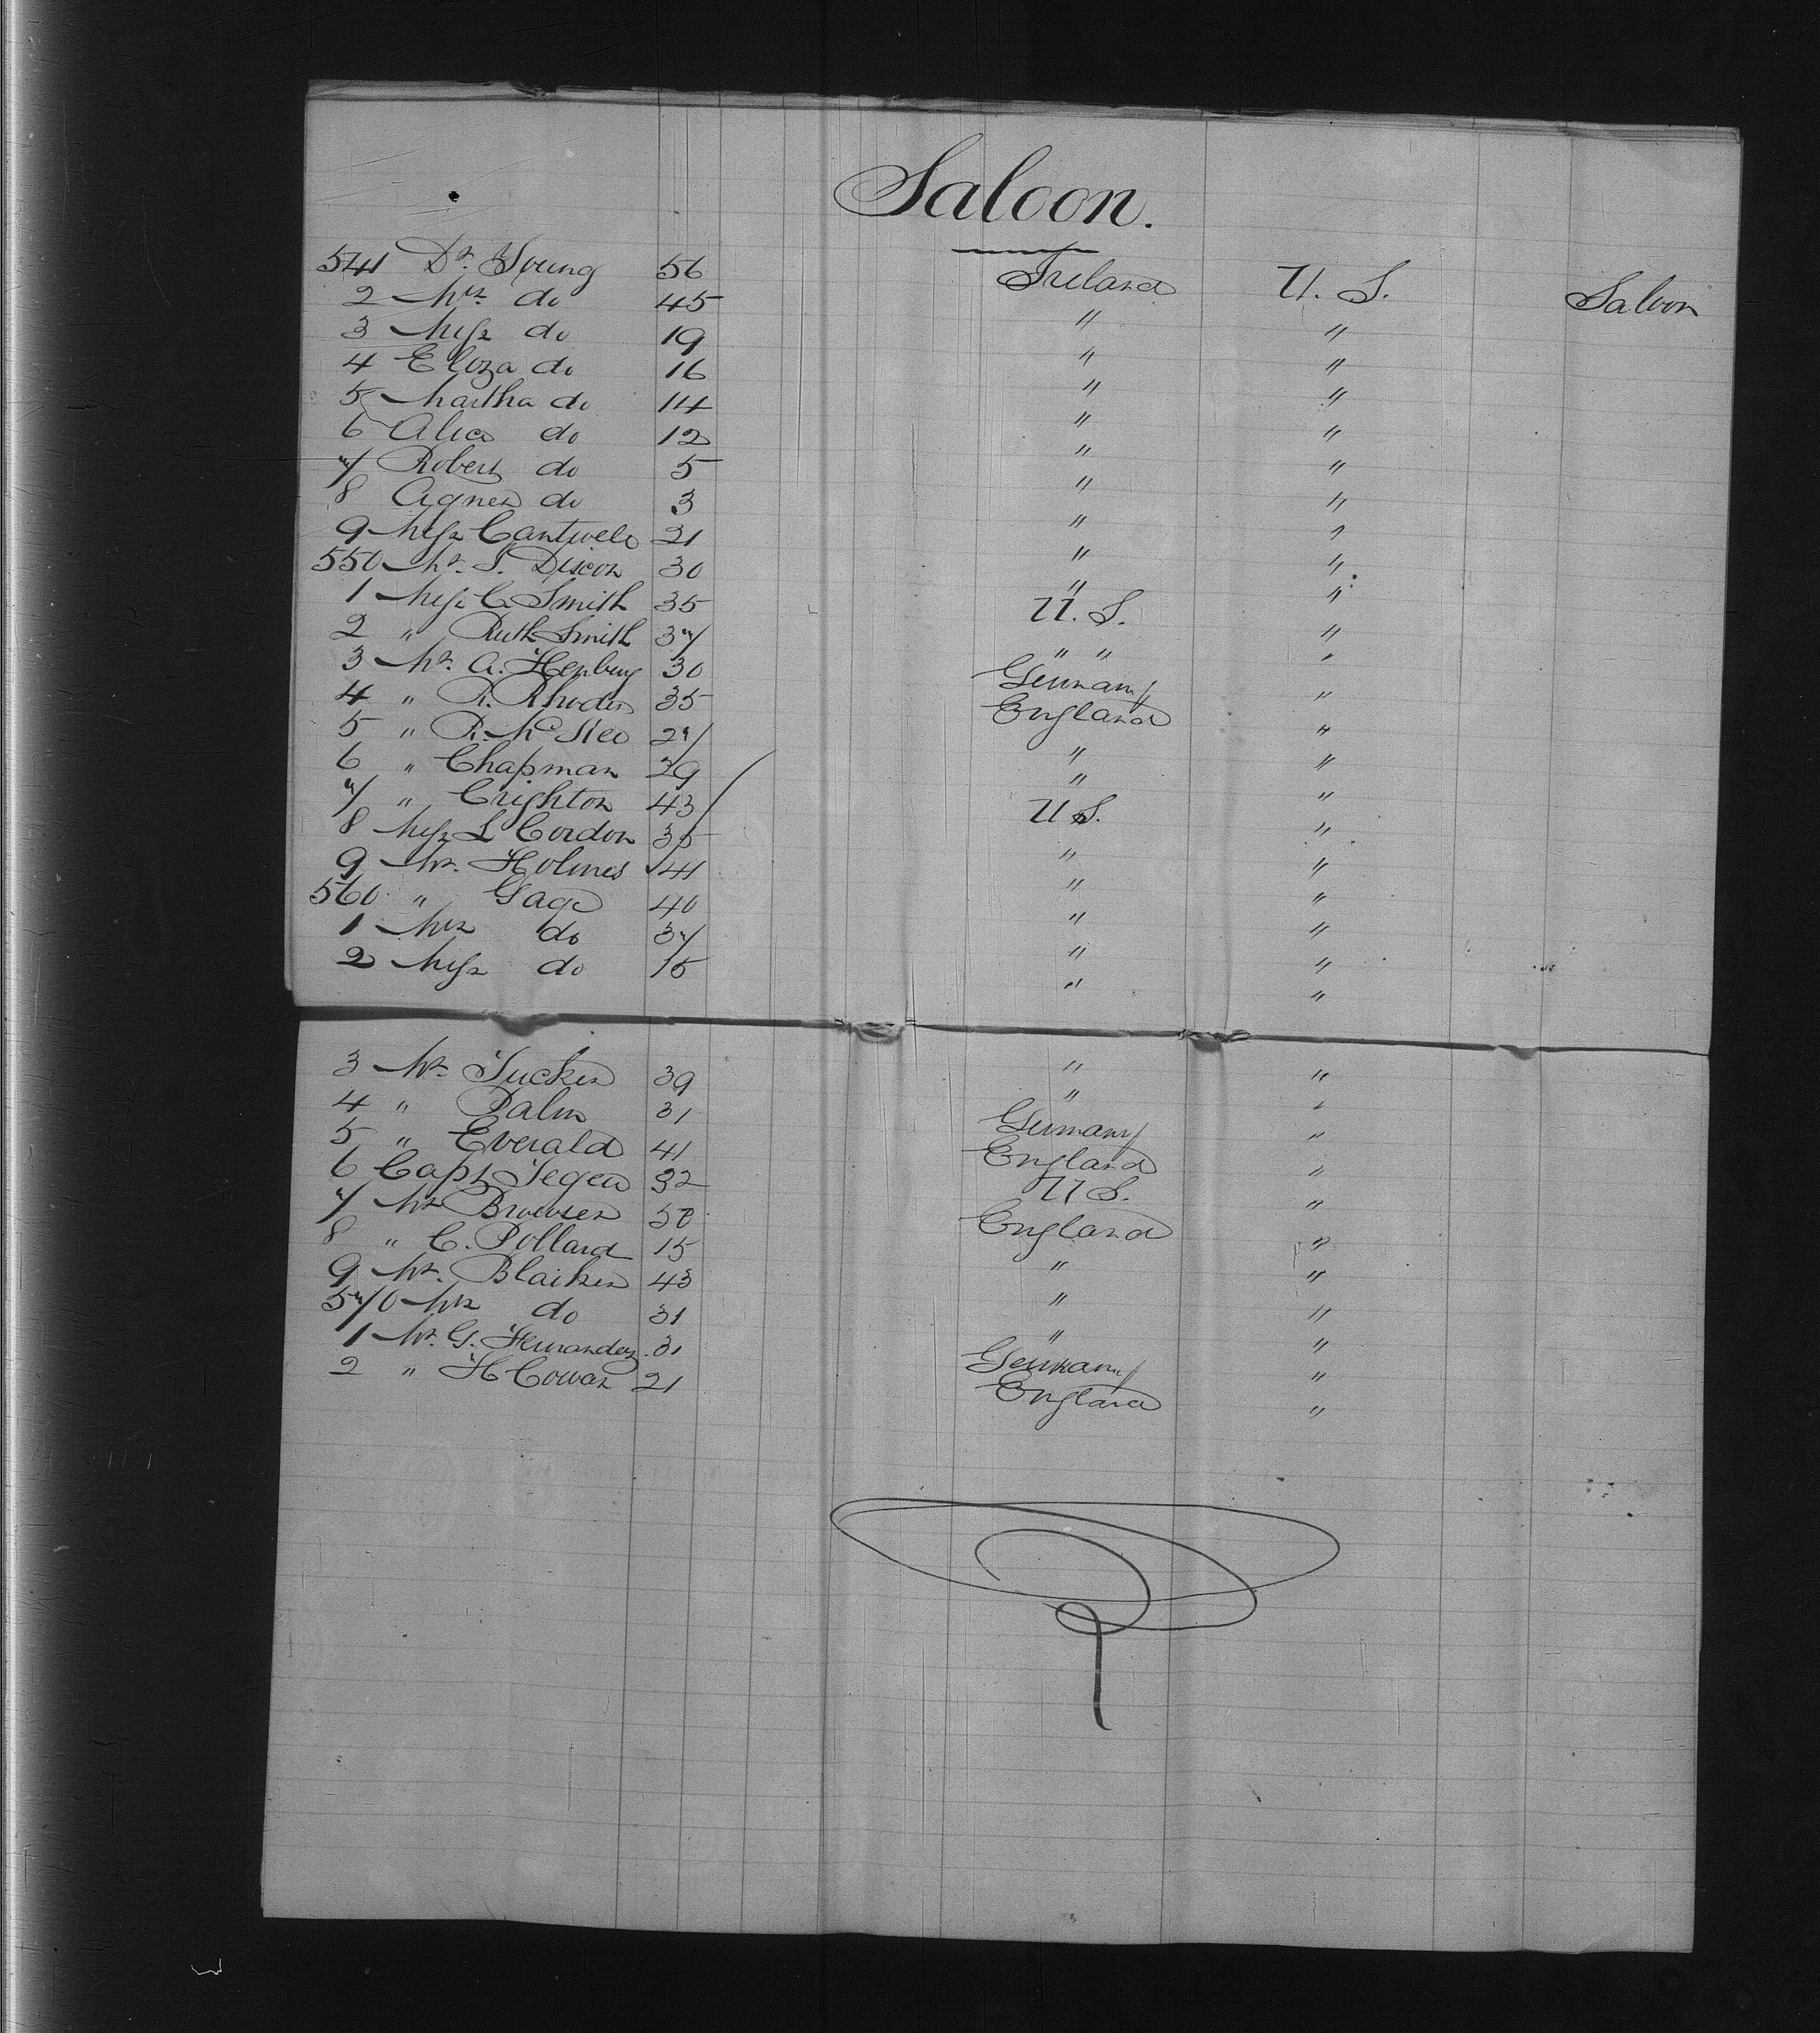 Saloon.
541 Dr. Young 56 Ireland U. S. Saloon
2 Mrs. do 45 " "
3 Miss do 19 " "
4 Eliza do 16 " "
5 Martha do 14 " "
6 Alice do 12 " "
7 Robert do 5 " "
8 Agnes do 3 " "
9 Miss Cantwell 21 " "
550 Mr. S. Dixon 30 " "
1 Miss C. Smith 35 U. S. "
2 " Ruth Smith 37 " " "
3 Mr. A. 30 Germany "
4 " R. Rhodes 35 England "
5 " R. McKee 27 " "
6 " Chapman 29 " "
7 " Crighton 43 U S. "
8 Miss L Cordon 35 " "
9 Mr. Holmes 41 " "
560 " Gage 40 " "
1 Mrs do 37 " "
2 Miss do 15 " "
3 Mr. Tucker 39 " "
4 " Palm 31 Germany "
5 " Everald 41 England "
6 Capt 32 U S. "
7 Mr England "
8 " C. Pollard 15 " "
9 Mr. Blaikie 43 " "
570 Mrs do 31 " "
1 Mr. G. Fernandez 31 Germany "
2 " H Cowan 21 England "